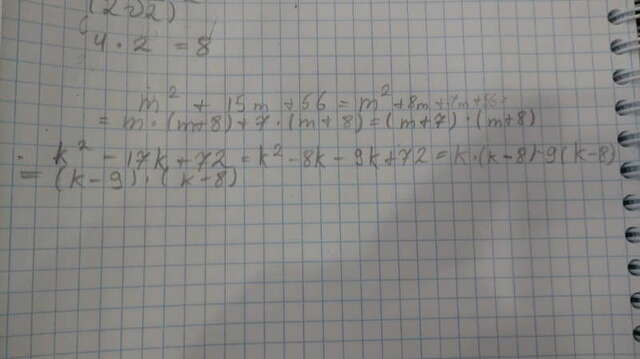 (2√2)
4 · 2 = 8
m² + 15m + 56 = m² + 8m + 7m + 56 =
= m · (m+8) + 7 · (m+8) = (m+7) · (m+8)
k² - 17k + 72 = k² - 8k - 9k + 72 = k · (k-8) - 9(k-8)
= (k-9) · (k-8)